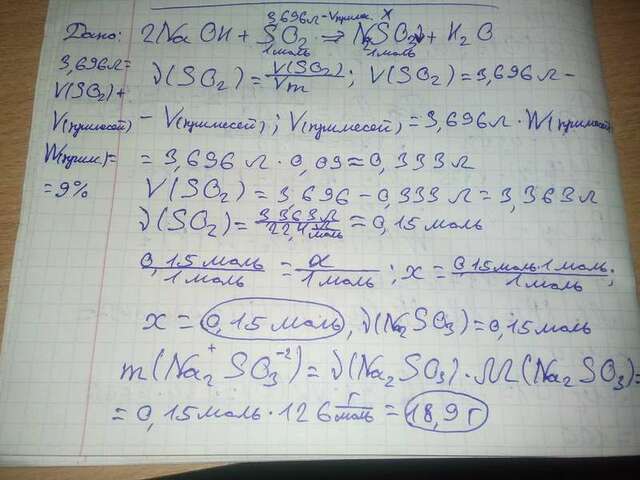 3,696л-Vприм. x
Дано: 2NaOH + SO2 => Na2SO3↓ + H2O
1моль 1моль
3,696л=
V(SO2)+
V(примесей)
W(прим.)=
=9%
ν(SO2) = V(SO2)/Vm ; V(SO2) = 3,696л -
- V(примесей) ; V(примесей) = 3,696л · W(примесей)
= 3,696 л · 0,09 ≈ 0,333л
V(SO2) = 3,696 - 0,333 л = 3,363л
ν(SO2) = 3,363л/22,4 л/моль = 0,15 моль
0,15 моль/1 моль = x/1 моль ; x = 0,15моль·1моль/1 моль ;
x = 0,15 моль, ν(Na2SO3) = 0,15моль
m(Na2⁺SO3⁻²) = ν(Na2SO3) · M(Na2SO3) =
= 0,15 моль · 126 г/моль = 18,9 г